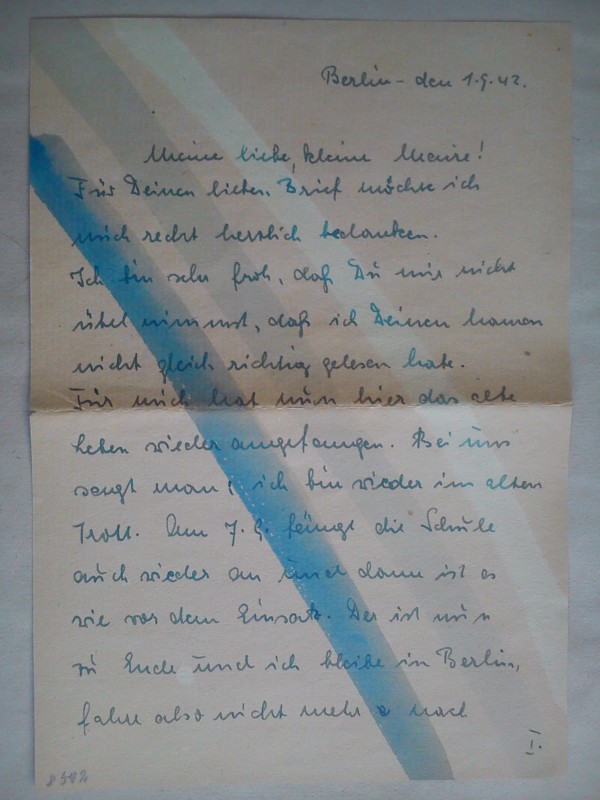 Berlin - den 1.9.42.
Meine liebe, kleine Maire!
Für Deinen lieben Brief möchte ich
mich recht herzlich bedanken.
Ich bin sehr froh, daß Du mir nicht
übel nimmst, daß ich Deinen Namen
nicht gleich richtig gelesen habe.
Für mich hat nun hier das alte
Leben wieder angefangen. Bei uns
sagt man: ich bin wieder im alten
Trott. Am 7.9. fängt die Schule
auch wieder an und dann ist es
wie vor dem Einsatz. Der ist nun
zu Ende und ich bleibe in Berlin,
fahre also nicht mehr nach
I.
8502